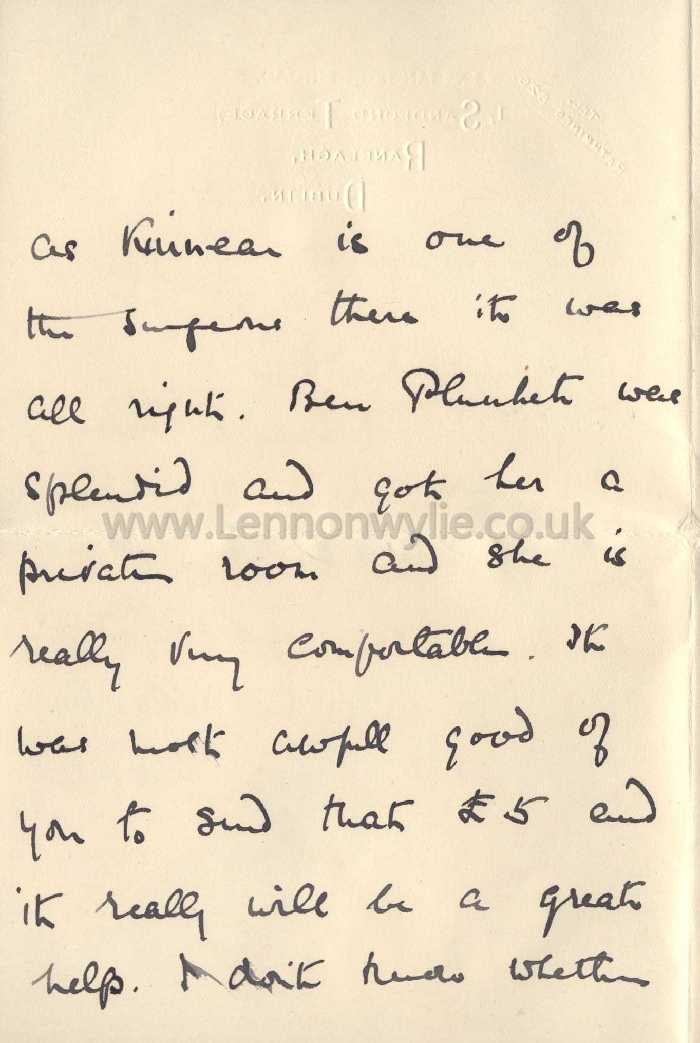 1 SANDFORD TERRACE,
RANELAGH,
DUBLIN.
as Kinnear is one of
the surgeons there it was
all right. Ben Plunket was
splendid and got her a
www.Lennonwylie.co.uk
private room and she is
really very comfortable. It
was most awfull good of
you to send that £5 and
it really will be a great
help. I don't know whether